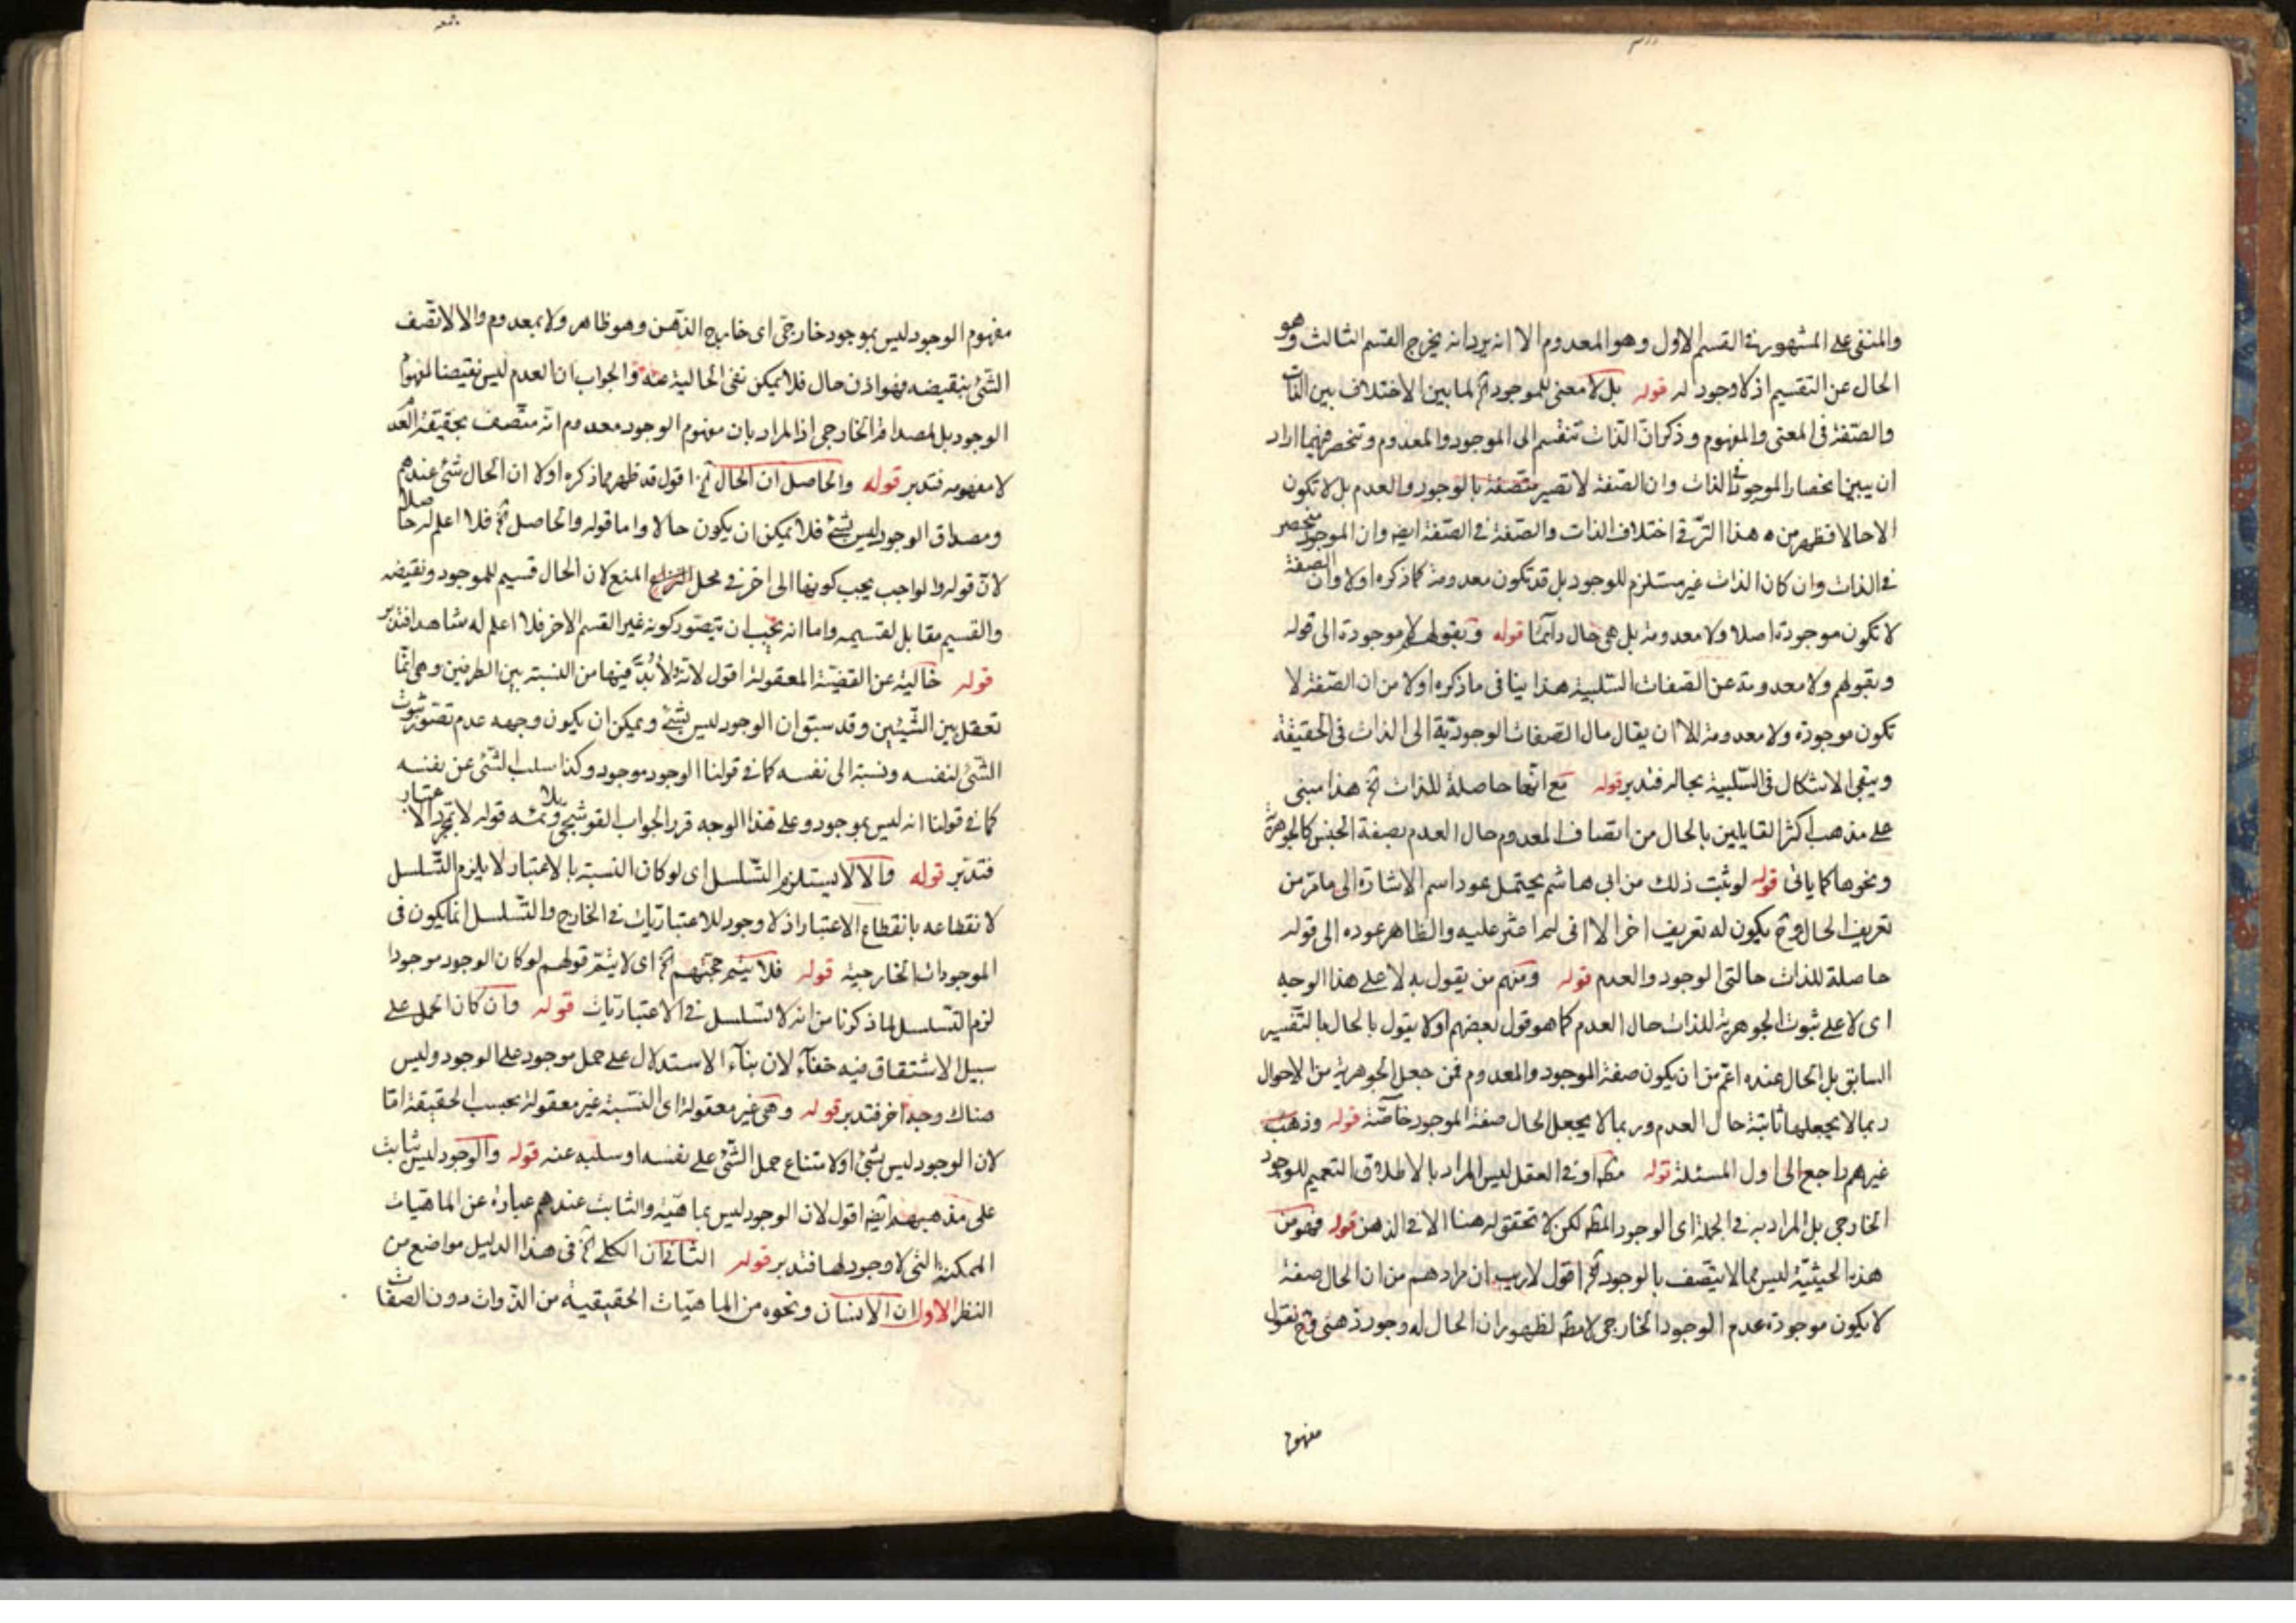 والمنفى على المشهور فى القسم الاول وهو المعدوم الا انه يريد انه يخرج القسم الثالث وهو
الحال عن التقسيم اذ لا وجود له قوله بل لا معنى للموجود آه لما بين الاختلاف بين الذات
والصّفة فى المعنى والمفهوم وذكر ان الذات تنقسم الى الموجود والمعدوم وتنحصر فيهما اراد
ان يبين انحصار الموجود فى الذات وان الصّفة لا تصير متصفة بالوجود والعدم بل لا تكون
الا حالا فظهر من ه هذا الترّقى اختلاف الذات والصّفة فى الصّفة ايضا وان الموجود منحصر
فى الذات وان كان الذات غير مستلزم للوجود بل قد تكون معدومة كما ذكره اولا وان الصفة
لا تكون موجودة اصلا ولا معدومة بل هى حال دائما قوله وبقولهم لا موجودة الى قوله
وبقولهم ولا معدومة عن الصّفات السّلبية هذا ينافى ما ذكره اولا من ان الصّفة لا
تكون موجودة ولا معدومة الا ان يقال مال الصّفات الوجوديّة الى الذات فى الحقيقة
ويبقى الاشكال فى السّلبية بحاله فتدبر قوله مع انّها حاصلة للذات آه هذا مبنى
على مذهب اكثر القايلين بالحال من اتصاف المعدوم حال العدم بصفة الجنس كالجوهريّة
ونحوها كما ياتى قوله لو ثبت ذلك من ابى هاشم يحتمل عود اسم الاشارة الى ما مرّ من
تعريف الحال وح يكون له تعريف اخر الا انى لم اعثر عليه والظاهر عوده الى قوله
حاصلة للذات حالتى الوجود والعدم قوله ومنهم من يقول به لا على هذا الوجه
اى لا على ثبوت الجوهرية للذات حال العدم كما هو قول بعضهم اولا يقول بالحال بالتّفسير
السابق بل الحال عنده اعمّ من ان يكون صفة الموجود والمعدوم فمن جعل الجوهرية من الاحوال
ربما لا يجعلها ثابتة حال العدم وربما لا يجعل الحال صفة الموجود خاصّة قوله وذهب
غيرهم راجع الى اول المسئلة قوله مطه او فى العقل ليس المراد بالاطلاق التعميم للوجود
الخارجى بل المراد به فى الجملة اى الوجود المطه لكن لا تحقق له هنا الا فى الذهن قوله فهو من
هذه الحيثيّة ليس مما لا يتّصف بالوجود آه اقول لا ريب ان مرادهم من ان الحال صفة
لا يكون موجودة عدم الوجود الخارجى لا مطه لظهور ان الحال له وجود ذهنى وح نقول
مفهوم
مفهوم الوجود ليس بموجود خارجىّ اى خارج الذّهن وهو ظاهر ولا بمعدوم والا لا تّصف
الشّئ بنقيضه فهو اذن حال فلا يمكن نفى الحالية عنه والجواب ان العدم ليس نقيضا لمفهوم
الوجود بل لمصداقه الخارجى اذ المراد بان مفهوم الوجود معدوم انّه متّصف بحقيقة العدم
لا مفهومه فتدبر قوله والحاصل ان الحال آه اقول قد ظهر مما ذكره اولا ان الحال شئ عندهم
ومصداق الوجود ليس بشئ فلا يمكن ان يكون حالا واما قوله والحاصل آه فلا اعلم له حاصلا
لانّ قوله والواجب يجب كونها الى اخره فى محل المنع لان الحال قسيم للموجود ونقيضه
والقسيم مقابل لقسيمه واما انه يجب ان يتصّور كونه غير القسم الاخر فلا اعلم له شاهدا فتدبر
قوله خالية عن القضيّة المعقولة اقول لانّه لا بُدَّ فيها من النسبة بين الطرفين وهى انّما
تعقل بين الشّيئين وقد سبق ان الوجود ليس بشئ ويمكن ان يكون وجهه عدم تصّور ثبوت
الشّئ لنفسه ونسبة الى نفسه كما فى قولنا الوجود موجود وكذا سلب الشّئ عن نفسه
كما فى قولنا انه ليس بموجود وعلى هذا الوجه قرر الجواب القوشجى قوله لا بمجرد الاعتبار
فتدبّر قوله والّا لا يستلزم التّسلسل اى لو كان النسبة بالاعتبار لا يلزم التّسلسل
لانقطاعه بانقطاع الاعتبار اذ لا وجود للاعتباريّات فى الخارج والتّسلسل انما يكون فى
الموجودات الخارجية قوله فلا يتم حجّتهم آه اى لا يتم قولهم لو كان الوجود موجودا
لزم التّسلسل لما ذكرنا من انه لا تسلسل فى الاعتباريّات قوله وان كان الحمل على
سبيل الاشتقاق فيه خفاء لان بناء الاستدلال على حمل موجود على الوجود وليس
هناك وجه اخر فتدبر قوله وهى غير معقولة اى النّسبة غير معقولة بحسب الحقيقة امّا
لان الوجود ليس بشئ او لامتناع حمل الشّئ على نفسه او سلبه عنه قوله والوجود ليس بثابت
على مذهبهم ايضه اقول لان الوجود ليس بماهيّة والثابت عندهم عبارة عن الماهيّات
الممكنة التى لا وجود لها فتدبر قوله الثانى ان الكلى آه فى هذا الدليل مواضع من
النظر الاول ان الانسان ونحوه من الماهيّات الحقيقية من الذّوات دون الصفات